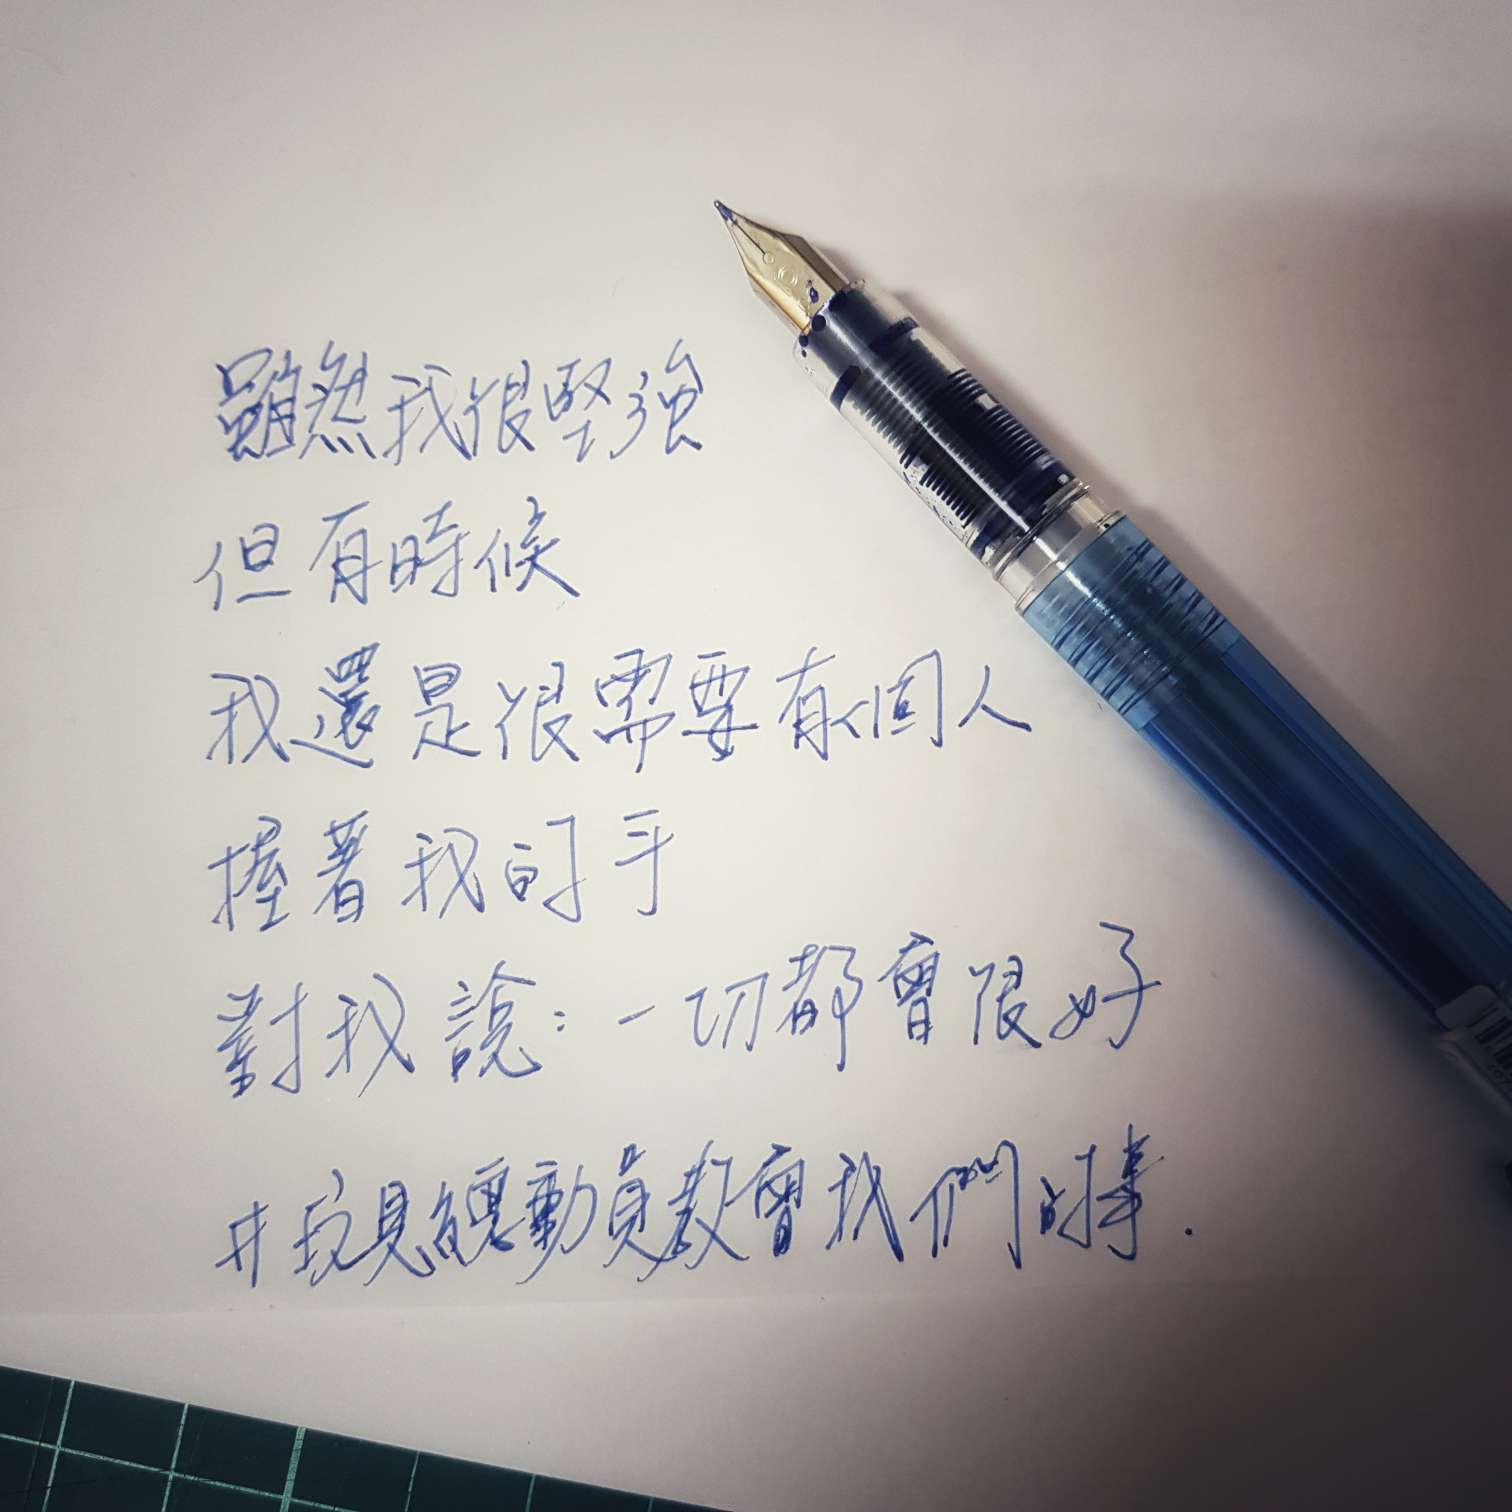 雖然我很堅強
但有時候
我還是很需要有個人
握著我的手
對我說:一切都會很好
#玩具總動員教會我們的事.